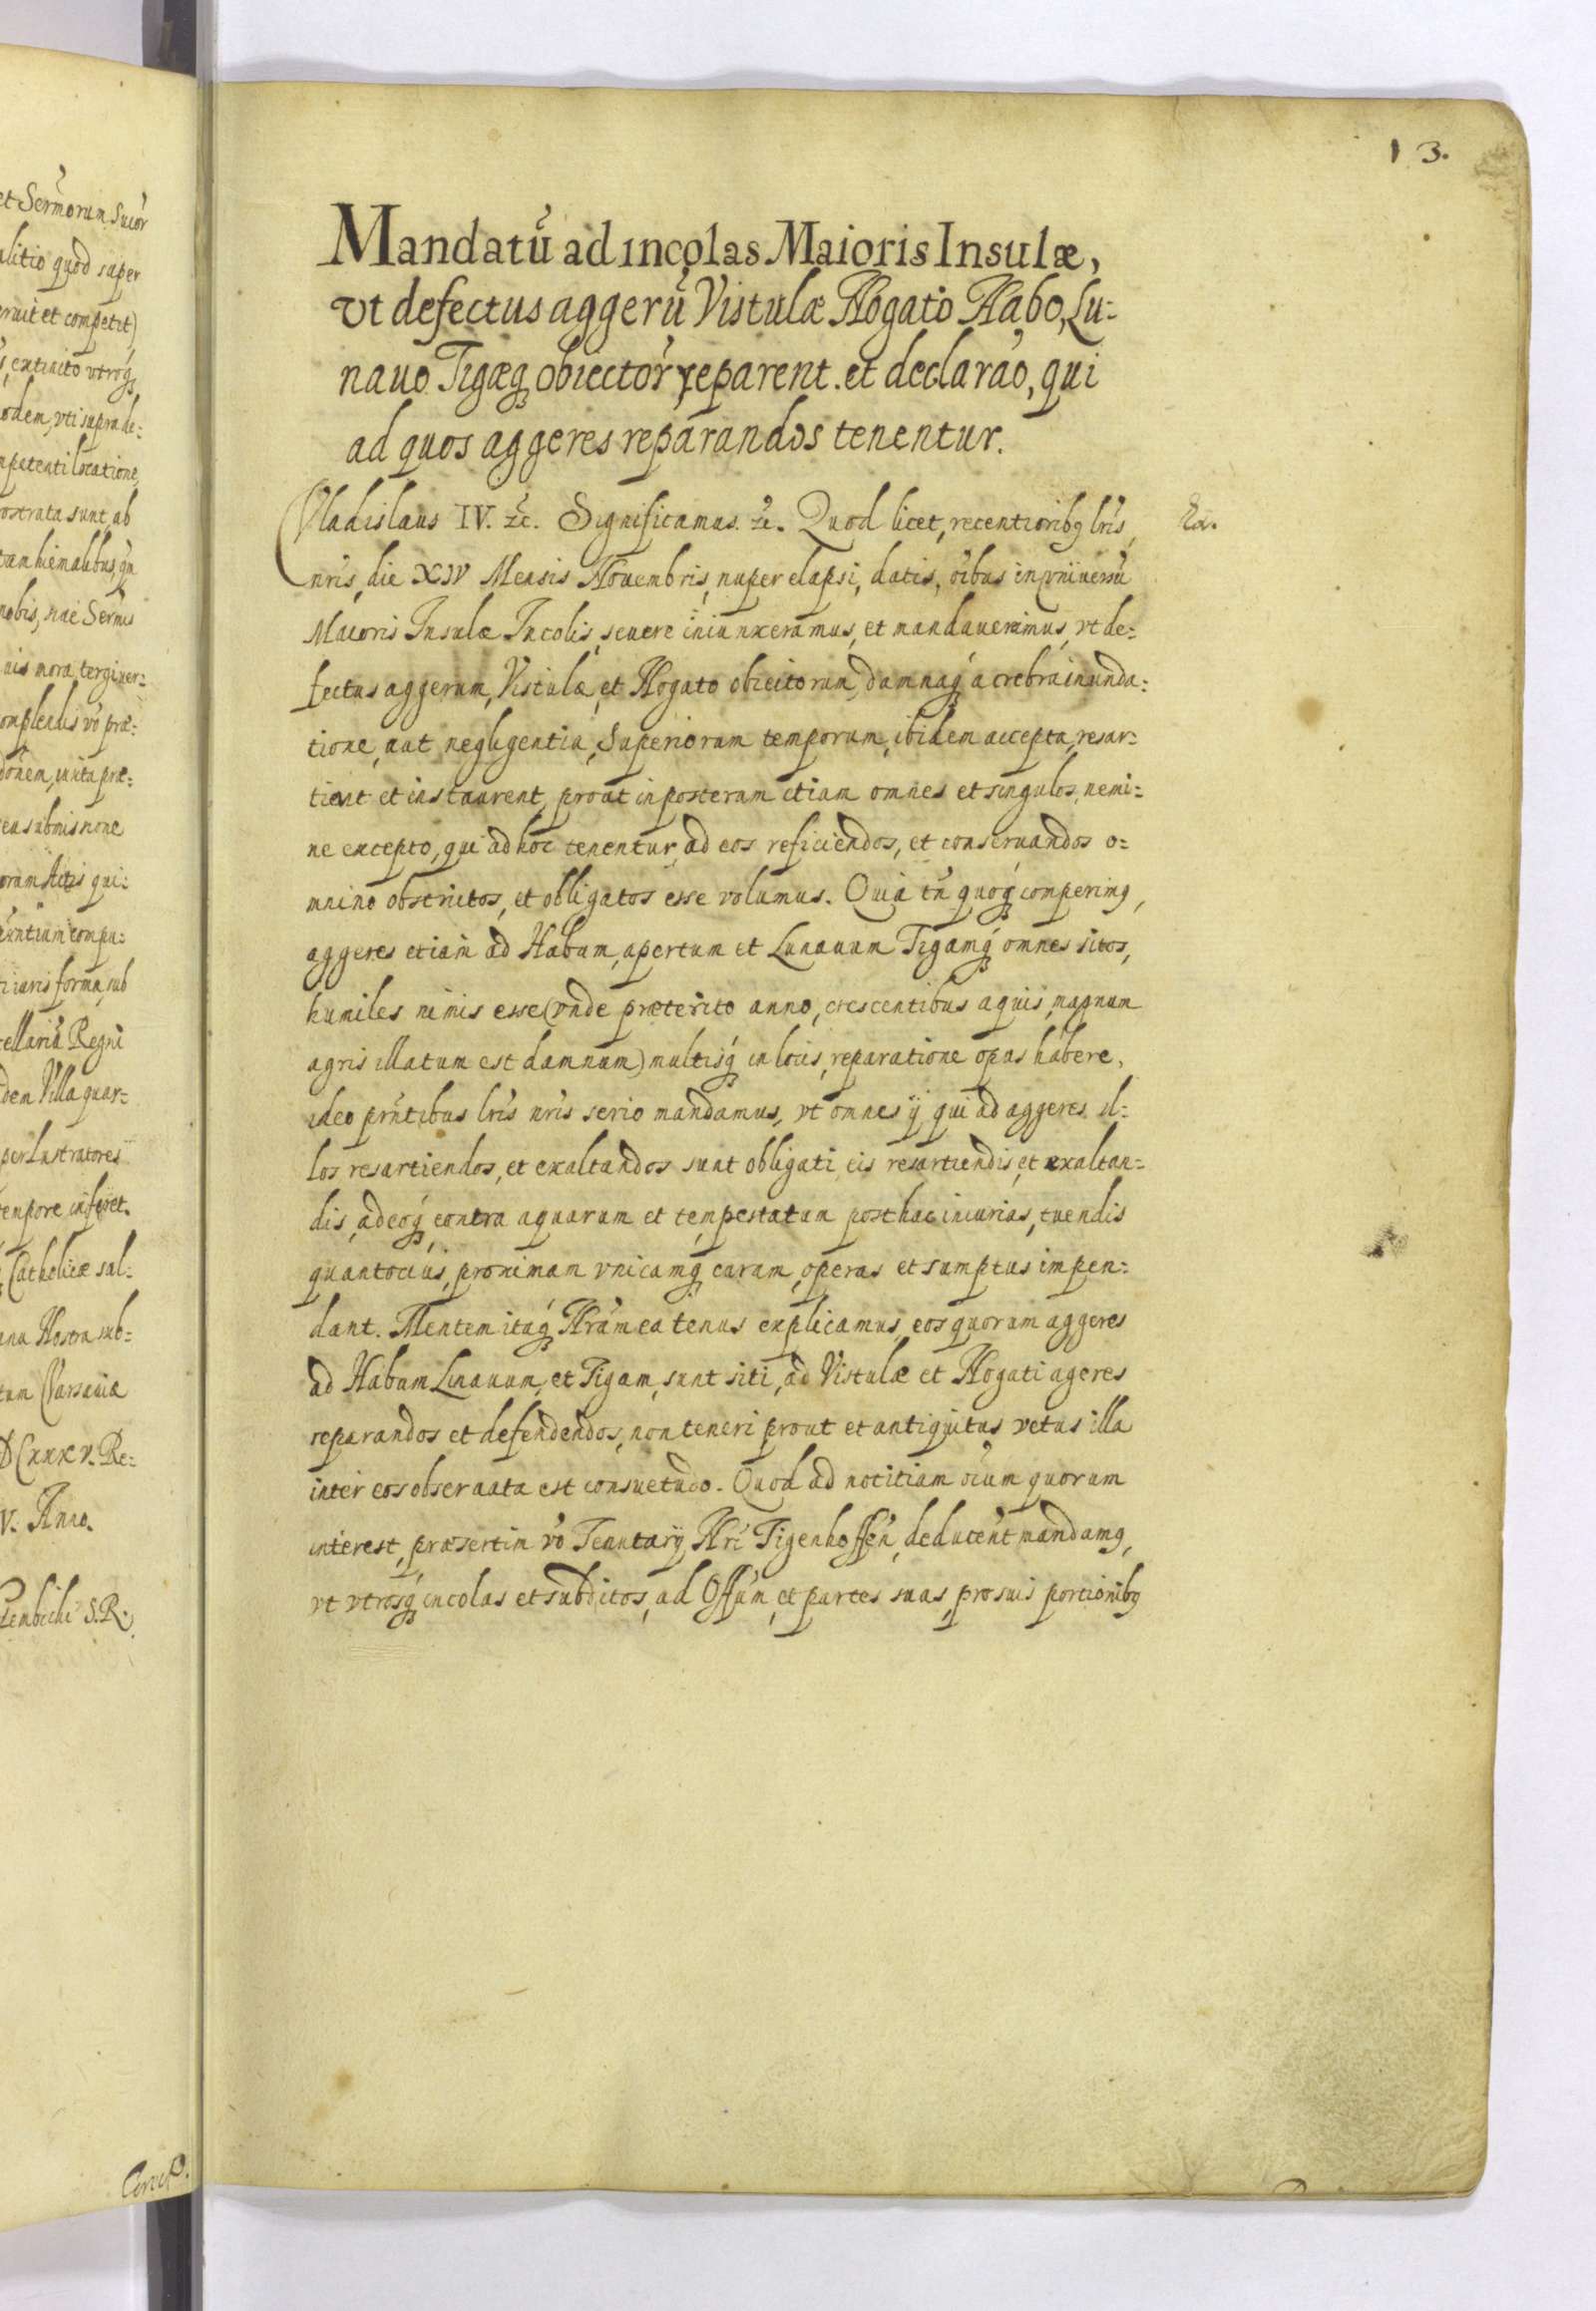 et Serm̃orum Succor̃
alitio quod super
eruit et competit)
extracto vtrōq́ꝫ
odem, vti supra de:
mpetenti locatione,
ostrata sunt, ab
tam hiemalibus, q̃
nobis, nae Sermis
uis mora, tergiuer:
omplendis v̊o præ:
dōnem, iuxta præ:
ea submissione
orum Actis qui:
iuris forma, sub
cellariā Regni
dem Villa quar:
per Lustratores
tempore inferet.
Catholicæ sal:
anu Nostra sub:
tum Varsauiæ
DCXXXV. Re:
V. Anno.
Zembicki S. R:
Corr̃.
13.
Mandatū ad incolas Maioris Insulæ,
vt defectus aggerū Vistulæ Nogato Habo, Lu:
nauo Tigæq́ꝫ obiectoř reparent. et declarão, qui
ad quos aggeres reparandos tenentur.
Vladislaus IV. &c. Significamus. &c. Quod licet, recentioribꝫ lrĩs,
Ex.
nrĩs, die XIV Mensis Nouembris, nuper elapsi, datis, oĩbus in vniuersū
Maioris Insulæ Incolis, seuere iniunxeramus, et mandauerimus, vt de:
fectus aggerum, Vistulæ, et Nogato obiectorum, damnaq́ꝫ a crebra inunda:
tione, aut negligentia, Superiorum temporum, ibidem accepta, resar:
tiant et instaurent, prout in posterum etiam omnes et singulos, nemi:
ne excepto, qui ad hoc tenentur, ad eos reficiendos, et conseruandos o:
mnino obstrictos, et obligatos esse volumus. Quia tñ quoq́ꝫ comperimꝫ,
aggeres etiam ad Habum, apertum et Lunauum Tigamq́ꝫ omnes sitos,
humiles nimis esse (vnde præterito anno, crescentibus aquis, magnum
agris illatum est damnum) multisq́ꝫ in locis, reparatione opus habere,
ideo prñtibus lrĩs nrĩs serio mandamus, vt omnes ij qui ad aggeres il:
los resartiendos, et exaltandos sunt obligati, eis resartiendis, et exaltan:
dis, adeoq́ꝫ contra aquarum et tempestatum posthac iniurias, tuendis
quantocius, proximam vnicamq́ꝫ curam, operas et sumptus impen:
dant. Mentem itaq́ꝫ Nrãm ea tenus explicamus, eos quorum aggeres
ad Habum Linauum, et Tigam, sunt siti, ad Vistulæ et Nogati ageres
reparandos et defendendos, non teneri, prout et antiquitus vetus illa
inter eos obseruata est consuetudo. Quod ad notitiam oĩum quorum
interest, præsertim v̊o Tenutarij Nrĩ Tigenhoffeñ, deducent̃ mandamꝫ,
vt vtrosq́ꝫ incolas et subditos, ad Offũm, et partes suas, pro suis portionibꝫ